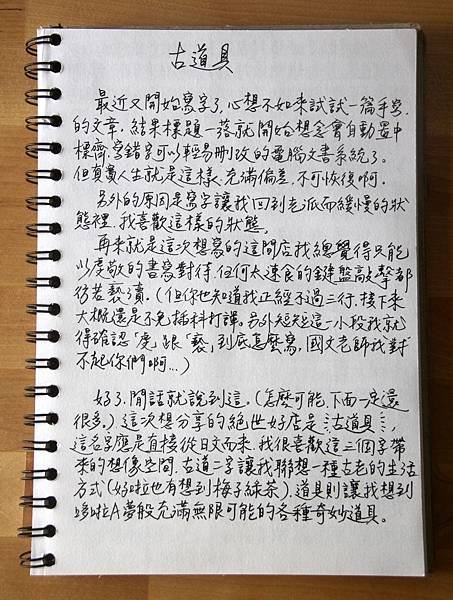 古道具
最近又開始寫字了,心想不如來試試一篇手寫
的文章,結果標題一落就開始想念會自動置中
標齊,寫錯字可以輕易刪改的電腦文書系統了。
但真實人生就是這樣,充滿偏差,不可恢復啊。
另外的原因是寫字讓我回到老派而緩慢的狀
態裡,我喜歡這樣的狀態。
再來就是這次想寫的這間店我總覺得只能
以虔敬的書寫對待,任何太速食的鍵盤敲擊都
彷若褻瀆。(但你也知道我正經不過三行,接下來
大概還是不免插科打諢。另外短短這一小段我就
得確認「虔」跟「褻」到底怎麼寫,國文老師我對
不起你們啊...)
好了,閒話就說到這。(怎麼可能,下面一定還
很多。) 這次想分享的絕世好店是 古道具,
這名字應是直接從日文而來,我很喜歡這三個字帶
來的想像空間,古道二字讓我聯想一種古老的生活
方式(好啦也有想到梅子綠茶),道具則讓我想到
哆啦A夢般充滿無限可能的各種奇妙道具。